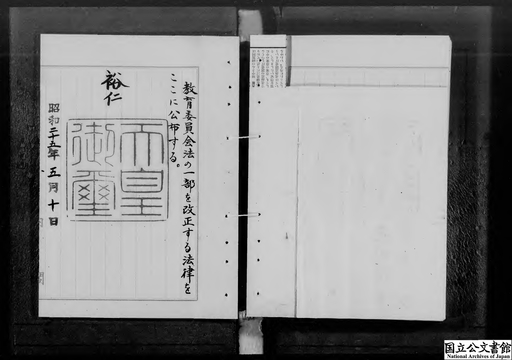 教育委員会法の一部を改正する法律を
ここに公布する。
裕仁
天皇
御璽
昭和二十五年五月十日
国立公文書館
National Archives of Japan